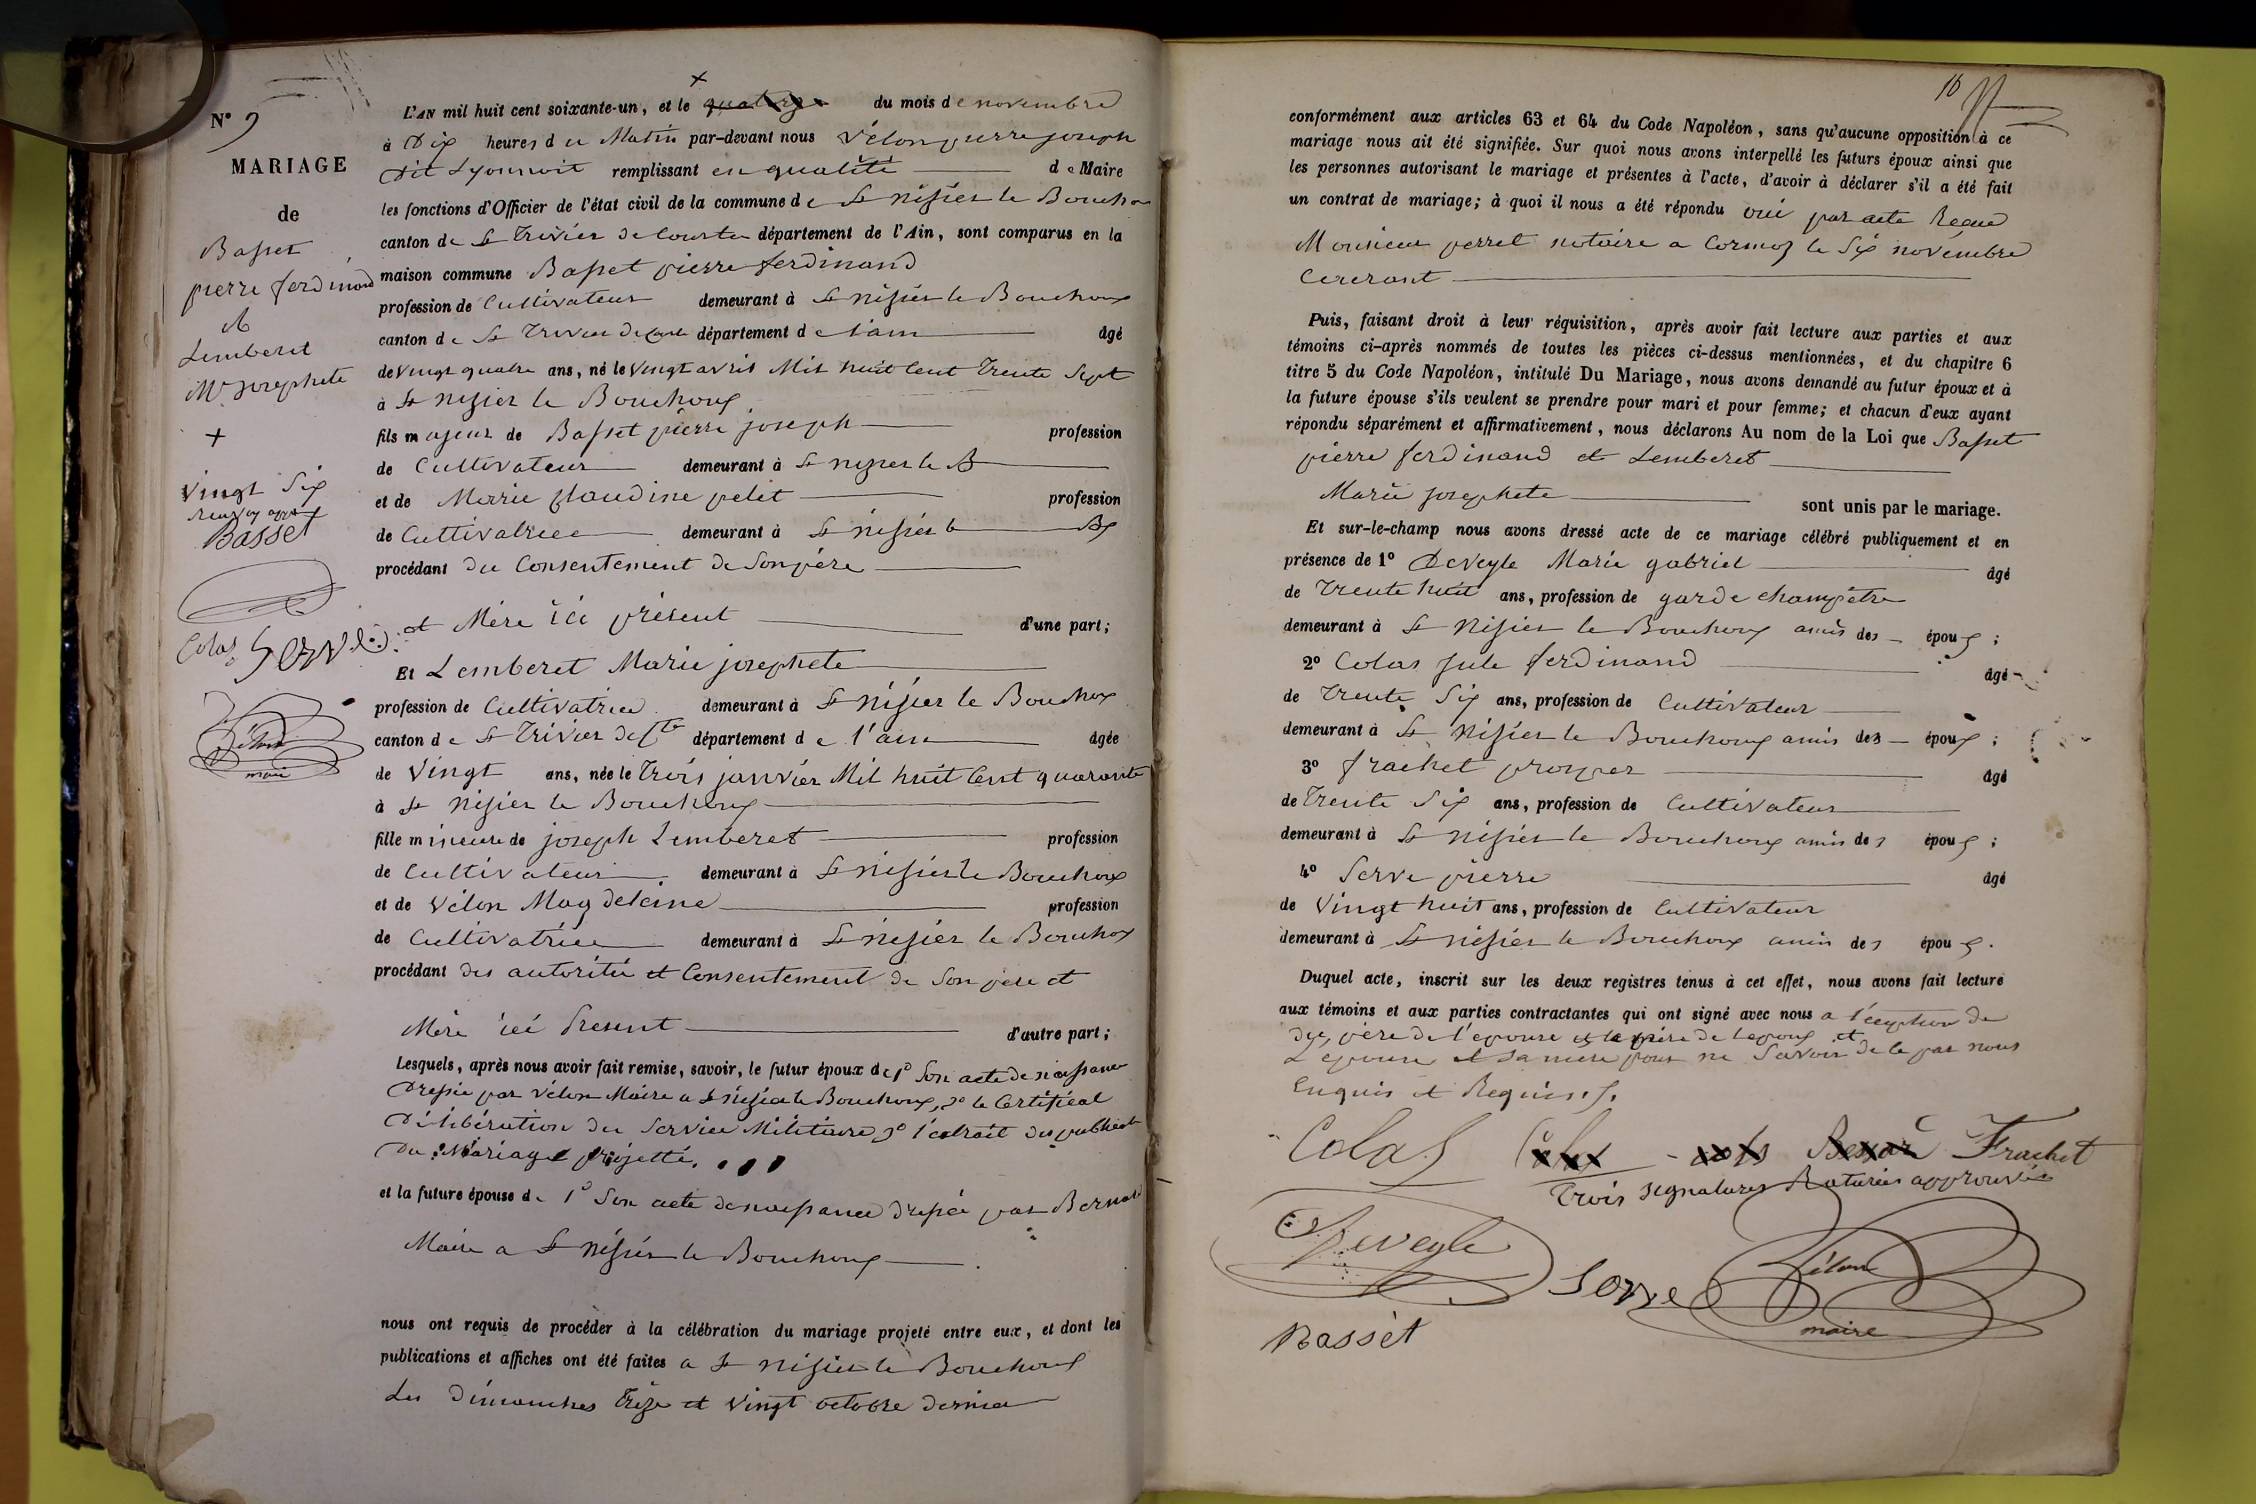 N° 9
MARIAGE
de
Basset
pierre ferdinand
&
Lemberet
Mie josephete
+
vingt Six
renvoy appr
Basset
Colas Serve
Vélon
maire
+
L'AN mil huit cent soixante-un, et le quatorze du mois de novembre
à Dix heures du Matin par-devant nous Vélon pierre joseph
dit Lyonnoit remplissant en qualité de Maire
les fonctions d'Officier de l'état civil de la commune de St nisier le Boucho
canton de St Trivier de Courte département de l'Ain, sont comparus en la
maison commune Basset pierre ferdinand
profession de Cultivateur demeurant à St nisier le Bouchoux
canton de St Trivier de Courte département de l'ain âgé
de vingt quatre ans, né le vingt avril Mil huit Cent Trente Sept
à St nisier le Bouchoux
fils majeur de Basset pierre joseph profession
de Cultivateur demeurant à St nisier le B
et de Marie Claudine petit profession
de Cultivatrice demeurant à St nisier le Bx
procédant du Consentement de Son père
et Mère ici présent d'une part;
Et Lemberet Marie josephete
profession de Cultivatrice demeurant à St nisier le Bouchox
canton de St Trivier de Cte département de l'ain âgée
de Vingt ans, née le Trois janvier Mil huit Cent quarante
à St nisier le Bouchoux
fille mineure de joseph Lemberet profession
de Cultivateur demeurant à St nisier le Bouchoux
et de Vélon Magdeleine profession
de Cultivatrice demeurant à St nisier le Bouchox
procédant des autorité et Consentement de Son père et
Mère ici Present d'autre part;
Lesquels, après nous avoir fait remise, savoir, le futur époux de 1° Son acte de naissance
Dressé par Vélon Maire a St nisier le Bouchoux, 2° le Certificat
Délibération du Service Militaire 3° l'extrait des publicat
Du Mariage projetté.
et la future épouse de 1° Son acte de naissance dressé par Bernard
Maire a St nisier le Bouchoux
nous ont requis de procéder à la célébration du mariage projeté entre eux, et dont les
publications et affiches ont été faites a St nisier le Bouchoux
Les Dimanches Trèze et Vingt octobre dernier
16
conformément aux articles 63 et 64 du Code Napoléon, sans qu'aucune opposition à ce
mariage nous ait été signifiée. Sur quoi nous avons interpellé les futurs époux ainsi que
les personnes autorisant le mariage et présentes à l'acte, d'avoir à déclarer s'il a été fait
un contrat de mariage; à quoi il nous a été répondu oui par acte Reçue
Monsieur perret notaire a Cormoz le Six novembre
Courant
Puis, faisant droit à leur réquisition, après avoir fait lecture aux parties et aux
témoins ci-après nommés de toutes les pièces ci-dessus mentionnées, et du chapitre 6
titre 5 du Code Napoléon, intitulé Du Mariage, nous avons demandé au futur époux et à
la future épouse s'ils veulent se prendre pour mari et pour femme; et chacun d'eux ayant
répondu séparément et affirmativement, nous déclarons Au nom de la Loi que Basset
pierre ferdinand et Lemberet
Marie josephete sont unis par le mariage.
Et sur-le-champ nous avons dressé acte de ce mariage célébré publiquement et en
présence de 1° Deveyle Marie gabriel âgé
de Trente huit ans, profession de garde champêtre
demeurant à St Nisier le Bouchoux amis des époux ;
2° Colas Jule ferdinand âgé
de Trente Six ans, profession de Cultivateur
demeurant à St Nisier le Bouchoux amis des époux ;
3° frachet prosper âgé
de Trente Six ans, profession de Cultivateur
demeurant à St Nisier le Bouchoux amis des époux ;
4° Serve pierre âgé
de Vingt huit ans, profession de Cultivateur
demeurant à St nisier le Bouchoux amis des époux .
Duquel acte, inscrit sur les deux registres tenus à cet effet, nous avons fait lecture
aux témoins et aux parties contractantes qui ont signé avec nous a l'exeption de
du père de l'epouse et la mère de l'epoux et
L'epouse et sa mère pour ne Savoir de le par nous
Enquis et Requis.
Colas Frachet
Trois signatures Raturées approuvées
Deveyle
Serve
Vélon
maire
Basset